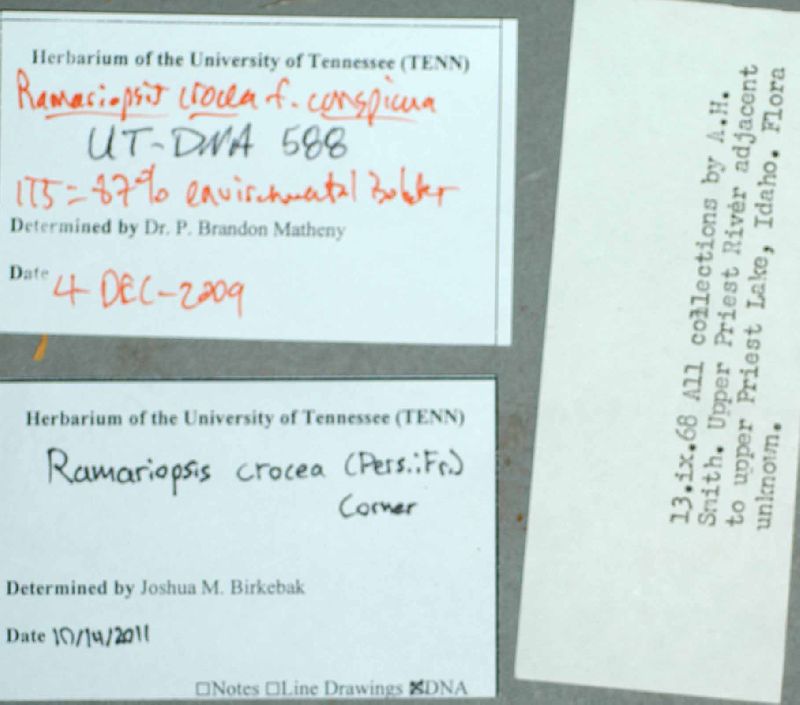 Herbarium of the University of Tennessee (TENN)
Ramariopsis crocea f. conspicua
UT-DNA 588
ITS = 87% environmental
Determined by Dr. P. Brandon Matheny
Date 4 DEC-2009
Herbarium of the University of Tennessee (TENN)
Ramariopsis crocea (Pers.:Fr.)
Corner
Determined by Joshua M. Birkebak
Date 10/14/2011
☐Notes ☐Line Drawings ☒DNA
13.ix.68 All collections by A.H.
Smith. Upper Priest River adjacent
to upper Priest Lake, Idaho. Flora
unknown.